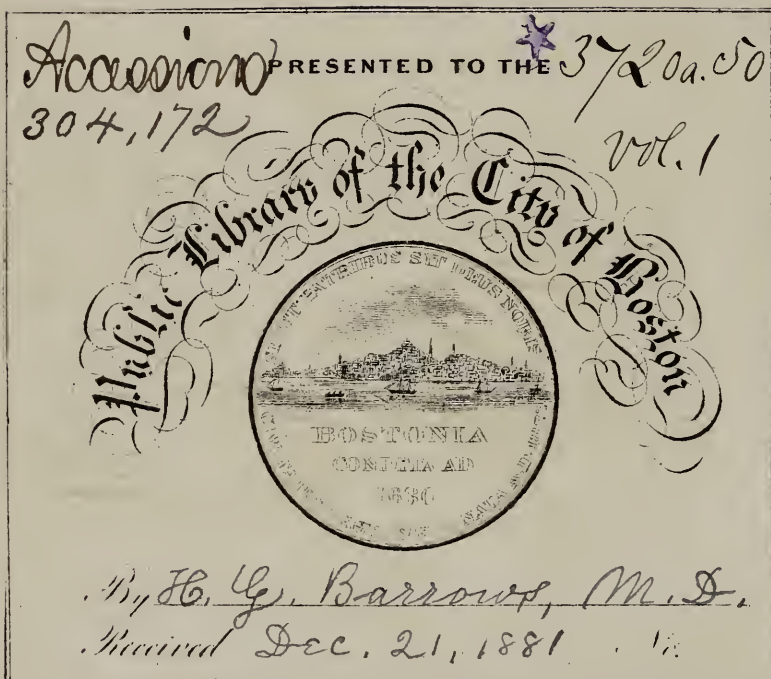 Accessions PRESENTED TO THE 3720a.50
304,172 vol. 1
Public Library of the City of Boston
SICUT PATRIBUS SIT DEUS NOBIS
BOSTONIA
CONDITA AD
1630
By H. G. Barrows, M.D.
Received Dec. 21, 1881